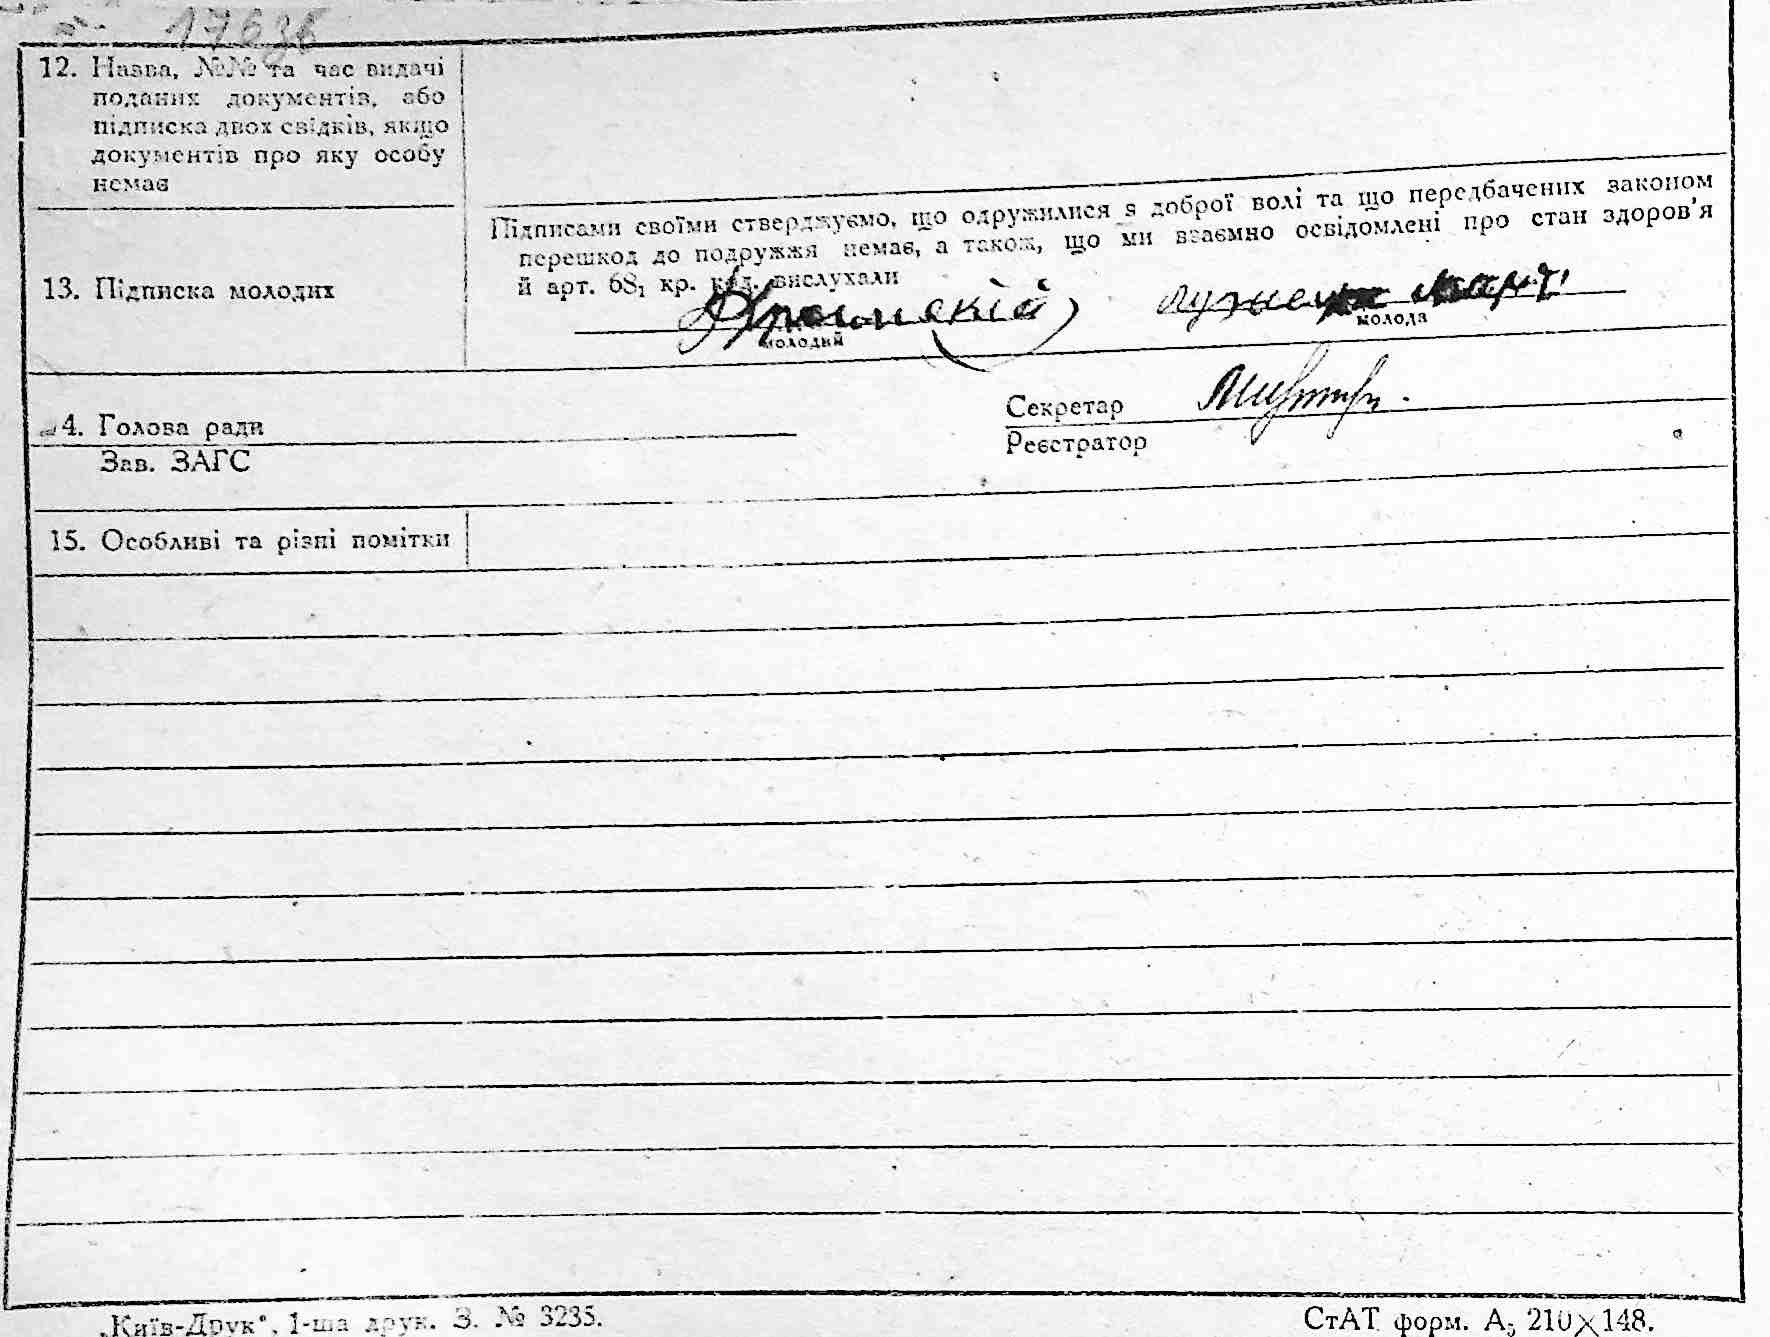 17636
12. Назва, №№ та час видачі
поданих документів, або
підписка двох свідків, якщо
документів про яку особу
немає
Підписами своїми стверджуємо, що одружилися з доброї волі та що передбачених законом
перешкод до подружжя немає, а також, що ми взаємно освідомлені про стан здоров'я
й арт. 68₁ кр. код. вислухали
13. Підписка молодих
молодий
молода
14. Голова ради
Зав. ЗАГС
Секретар
Реєстратор
15. Особливі та різні помітки
„Київ-Друк“, 1-ша друк. З. № 3235.
СтАТ форм. А₅ 210×148.